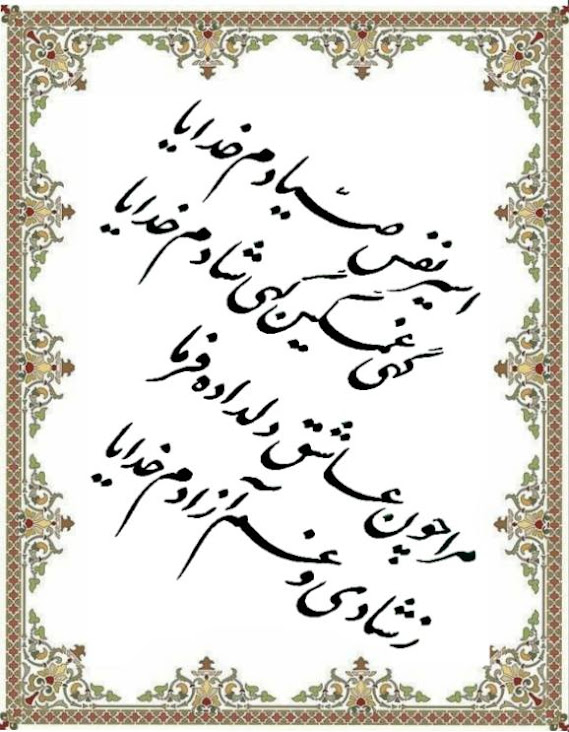 اسیر نفس صیّادم خدایا
گهی غمگین گهی شادم خدایا
مرا چون عاشق دلداده فرما
ز شادی و غم آزادم خدایا